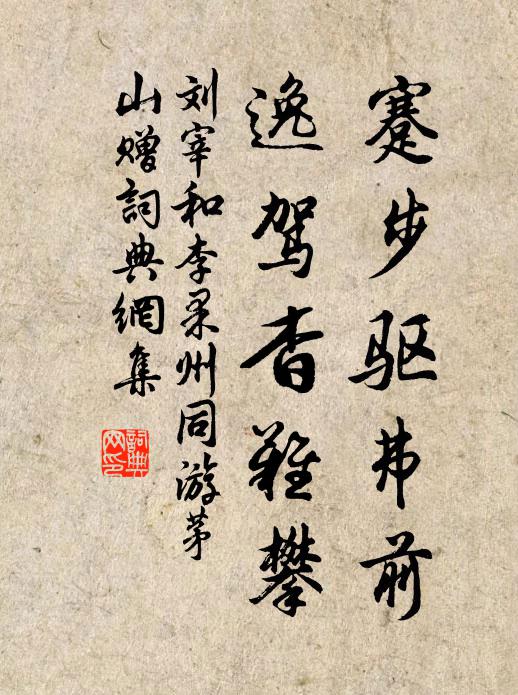 蹇步驱弗前
逸驾杳难攀
刘宰和李果州同游茅
山赠詞典網集
詞典
网印